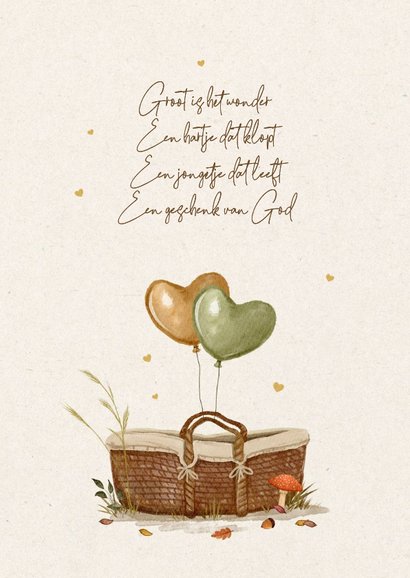 Groot is het wonder
Een hartje dat klopt
Een jongetje dat leeft
Een geschenk van God